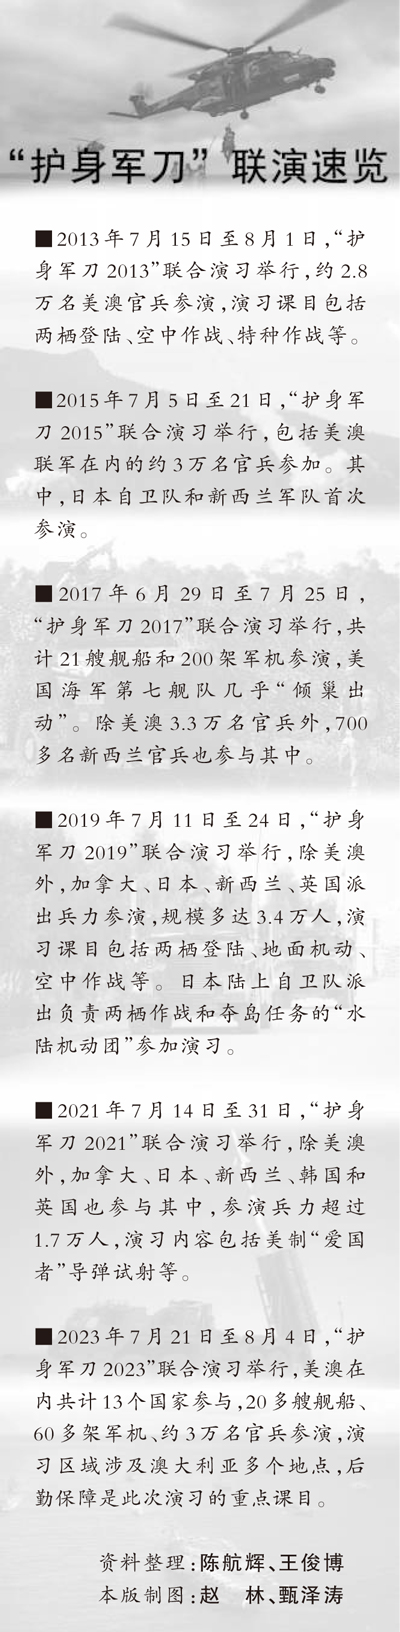 “护身军刀”联演速览
■2013年7月15日至8月1日,“护
身军刀2013”联合演习举行,约2.8
万名美澳官兵参演,演习课目包括
两栖登陆、空中作战、特种作战等。
■2015年7月5日至21日,“护身军
刀2015”联合演习举行,包括美澳
联军在内的约3万名官兵参加。其
中,日本自卫队和新西兰军队首次
参演。
■2017年6月29日至7月25日,
“护身军刀2017”联合演习举行,共
计21艘舰船和200架军机参演,美
国海军第七舰队几乎“倾巢出
动”。除美澳3.3万名官兵外,700
多名新西兰官兵也参与其中。
■2019年7月11日至24日,“护身
军刀2019”联合演习举行,除美澳
外,加拿大、日本、新西兰、英国派
出兵力参演,规模多达3.4万人,演
习课目包括两栖登陆、地面机动、
空中作战等。日本陆上自卫队派
出负责两栖作战和夺岛任务的“水
陆机动团”参加演习。
■2021年7月14日至31日,“护身
军刀2021”联合演习举行,除美澳
外,加拿大、日本、新西兰、韩国和
英国也参与其中,参演兵力超过
1.7万人,演习内容包括美制“爱国
者”导弹试射等。
■2023年7月21日至8月4日,“护
身军刀2023”联合演习举行,美澳在
内共计13个国家参与,20多艘舰船、
60多架军机、约3万名官兵参演,演
习区域涉及澳大利亚多个地点,后
勤保障是此次演习的重点课目。
资料整理:陈航辉、王俊博
本版制图:赵　林、甄泽涛